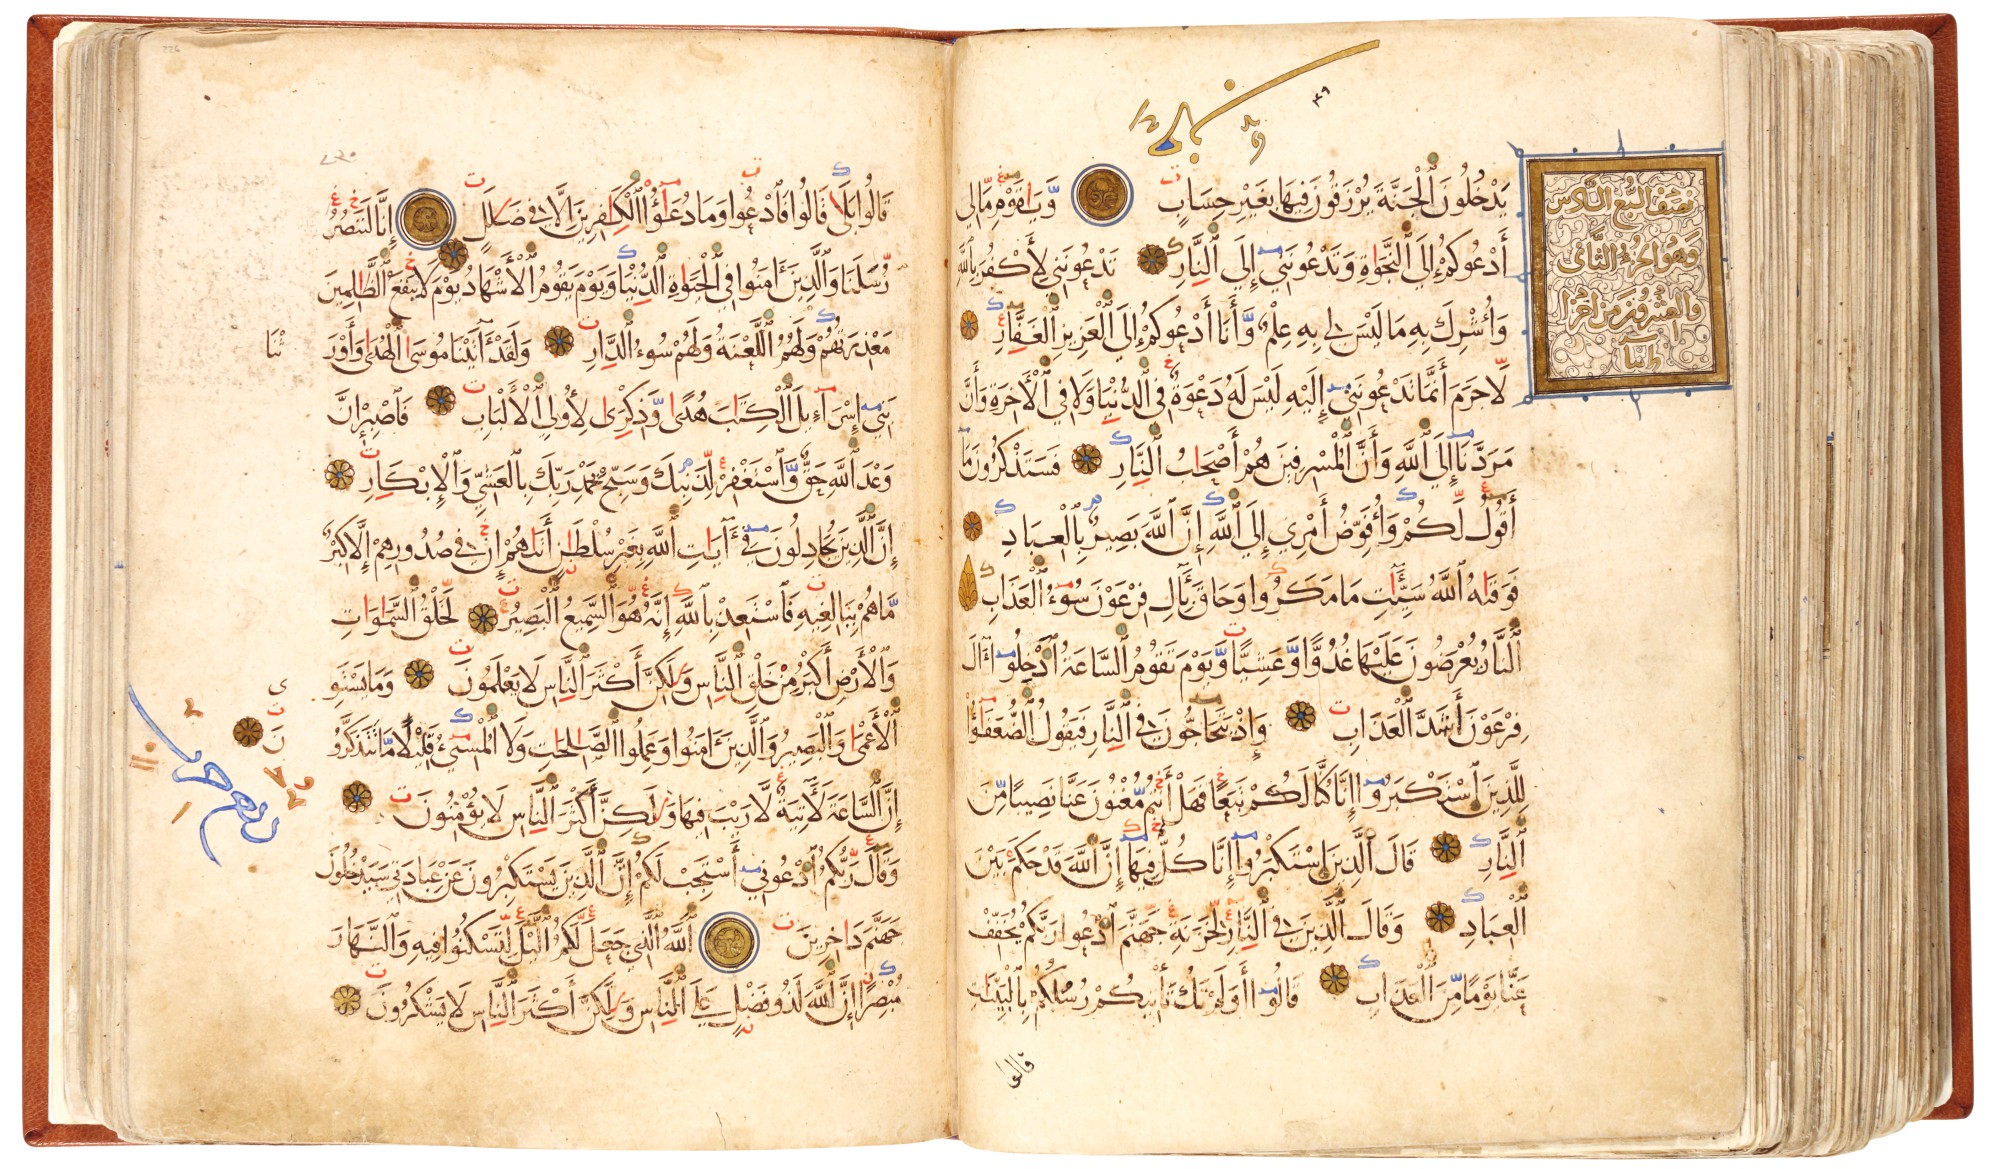 يَدْخُلُونَ ٱلْجَنَّةَ يُرْزَقُونَ فِيهَا بِغَيْرِ حِسَابٍ وَيَاقَوْمِ مَا لِي
أَدْعُوكُمْ إِلَى ٱلنَّجَوٰةِ وَتَدْعُونَنِي إِلَى ٱلنَّارِ تَدْعُونَنِي لِأَكْفُرَ بِاللَّهِ
وَأُشْرِكَ بِهِ مَا لَيْسَ لِي بِهِ عِلْمٌ وَأَنَا أَدْعُوكُمْ إِلَى ٱلْعَزِيزِ ٱلْغَفَّارِ
لَا جَرَمَ أَنَّمَا تَدْعُونَنِي إِلَيْهِ لَيْسَ لَهُ دَعْوَةٌ فِي ٱلدُّنْيَا وَلَا فِي ٱلْأَخِرَةِ وَأَنَّ
مَرَدَّنَا إِلَى ٱللَّهِ وَأَنَّ ٱلْمُسْرِفِينَ هُمْ أَصْحَابُ ٱلنَّارِ فَسَتَذْكُرُونَ مَا
أَقُولُ لَكُمْ وَأُفَوِّضُ أَمْرِي إِلَى ٱللَّهِ إِنَّ ٱللَّهَ بَصِيرٌ بِٱلْعِبَادِ
فَوَقَاهُ ٱللَّهُ سَيِّئَاتِ مَا مَكَرُوا وَحَاقَ بِآلِ فِرْعَوْنَ سُوءُ ٱلْعَذَابِ
ٱلنَّارُ يُعْرَضُونَ عَلَيْهَا غُدُوًّا وَعَشِيًّا وَيَوْمَ تَقُومُ ٱلسَّاعَةُ ٱدْخِلُوا آلَ
فِرْعَوْنَ أَشَدَّ ٱلْعَذَابِ وَإِذْ يَتَحَاجُّونَ فِي ٱلنَّارِ فَيَقُولُ ٱلضُّعَفَٰؤُا
لِلَّذِينَ ٱسْتَكْبَرُوا إِنَّا كُنَّا لَكُمْ تَبَعًا فَهَلْ أَنْتُمْ مُغْنُونَ عَنَّا نَصِيبًا مِنَ
ٱلنَّارِ قَالَ ٱلَّذِينَ ٱسْتَكْبَرُوا إِنَّا كُلٌّ فِيهَا إِنَّ ٱللَّهَ قَدْ حَكَمَ بَيْنَ
ٱلْعِبَادِ وَقَالَ ٱلَّذِينَ فِي ٱلنَّارِ لِخَزَنَةِ جَهَنَّمَ ٱدْعُوا رَبَّكُمْ يُخَفِّفْ
عَنَّا يَوْمًا مِنَ ٱلْعَذَابِ قَالُوا أَوَلَمْ تَكُ تَأْتِيكُمْ رُسُلُكُمْ بِٱلْبَيِّنَاتِ
قالوا
نصف السبع السادس
وهو الجزء الثاني
والعشرون من اجزا
قَالُوا بَلَىٰ قَالُوا فَٱدْعُوا وَمَا دُعَٰؤُا ٱلْكَافِرِينَ إِلَّا فِي ضَلَالٍ إِنَّا لَنَنْصُرُ
رُسُلَنَا وَٱلَّذِينَ ءَامَنُوا فِي ٱلْحَيَوٰةِ ٱلدُّنْيَا وَيَوْمَ يَقُومُ ٱلْأَشْهَادُ يَوْمَ لَا يَنْفَعُ ٱلظَّالِمِينَ
مَعْذِرَتُهُمْ وَلَهُمُ ٱللَّعْنَةُ وَلَهُمْ سُوءُ ٱلدَّارِ وَلَقَدْ ءَاتَيْنَا مُوسَى ٱلْهُدَى وَأَوْرَ
ثْنَا
بَنِي إِسْرَاءِيلَ ٱلْكِتَابَ هُدًى وَذِكْرَى لِأُولِي ٱلْأَلْبَابِ فَٱصْبِرْ إِنَّ
وَعْدَ ٱللَّهِ حَقٌّ وَٱسْتَغْفِرْ لِذَنْبِكَ وَسَبِّحْ بِحَمْدِ رَبِّكَ بِٱلْعَشِيِّ وَٱلْإِبْكَارِ
إِنَّ ٱلَّذِينَ يُجَادِلُونَ فِي ءَايَاتِ ٱللَّهِ بِغَيْرِ سُلْطَانٍ أَتَاهُمْ إِنْ فِي صُدُورِهِمْ إِلَّا كِبْرٌ
مَا هُمْ بِبَالِغِيهِ فَٱسْتَعِذْ بِٱللَّهِ إِنَّهُ هُوَ ٱلسَّمِيعُ ٱلْبَصِيرُ لَخَلْقُ ٱلسَّمَوَاتِ
وَٱلْأَرْضِ أَكْبَرُ مِنْ خَلْقِ ٱلنَّاسِ وَلَكِنَّ أَكْثَرَ ٱلنَّاسِ لَا يَعْلَمُونَ وَمَا يَسْتَوِ
ى
ٱلْأَعْمَى وَٱلْبَصِيرُ وَٱلَّذِينَ ءَامَنُوا وَعَمِلُوا ٱلصَّالِحَاتِ وَلَا ٱلْمُسِيءُ قَلِيلًا مَا تَتَذَكَّرُو
نَ
إِنَّ ٱلسَّاعَةَ لَآتِيَةٌ لَا رَيْبَ فِيهَا وَلَكِنَّ أَكْثَرَ ٱلنَّاسِ لَا يُؤْمِنُونَ
وَقَالَ رَبُّكُمُ ٱدْعُونِي أَسْتَجِبْ لَكُمْ إِنَّ ٱلَّذِينَ يَسْتَكْبِرُونَ عَنْ عِبَادَتِي سَيَدْخُلُونَ
جَهَنَّمَ دَاخِرِينَ ٱللَّهُ ٱلَّذِي جَعَلَ لَكُمُ ٱلَّيْلَ لِتَسْكُنُوا فِيهِ وَٱلنَّهَارَ
مُبْصِرًا إِنَّ ٱللَّهَ لَذُو فَضْلٍ عَلَى ٱلنَّاسِ وَلَكِنَّ أَكْثَرَ ٱلنَّاسِ لَا يَشْكُرُونَ